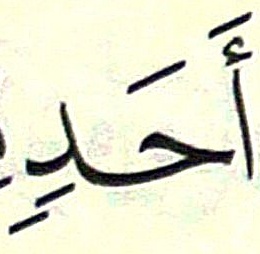 أَحَدٍ